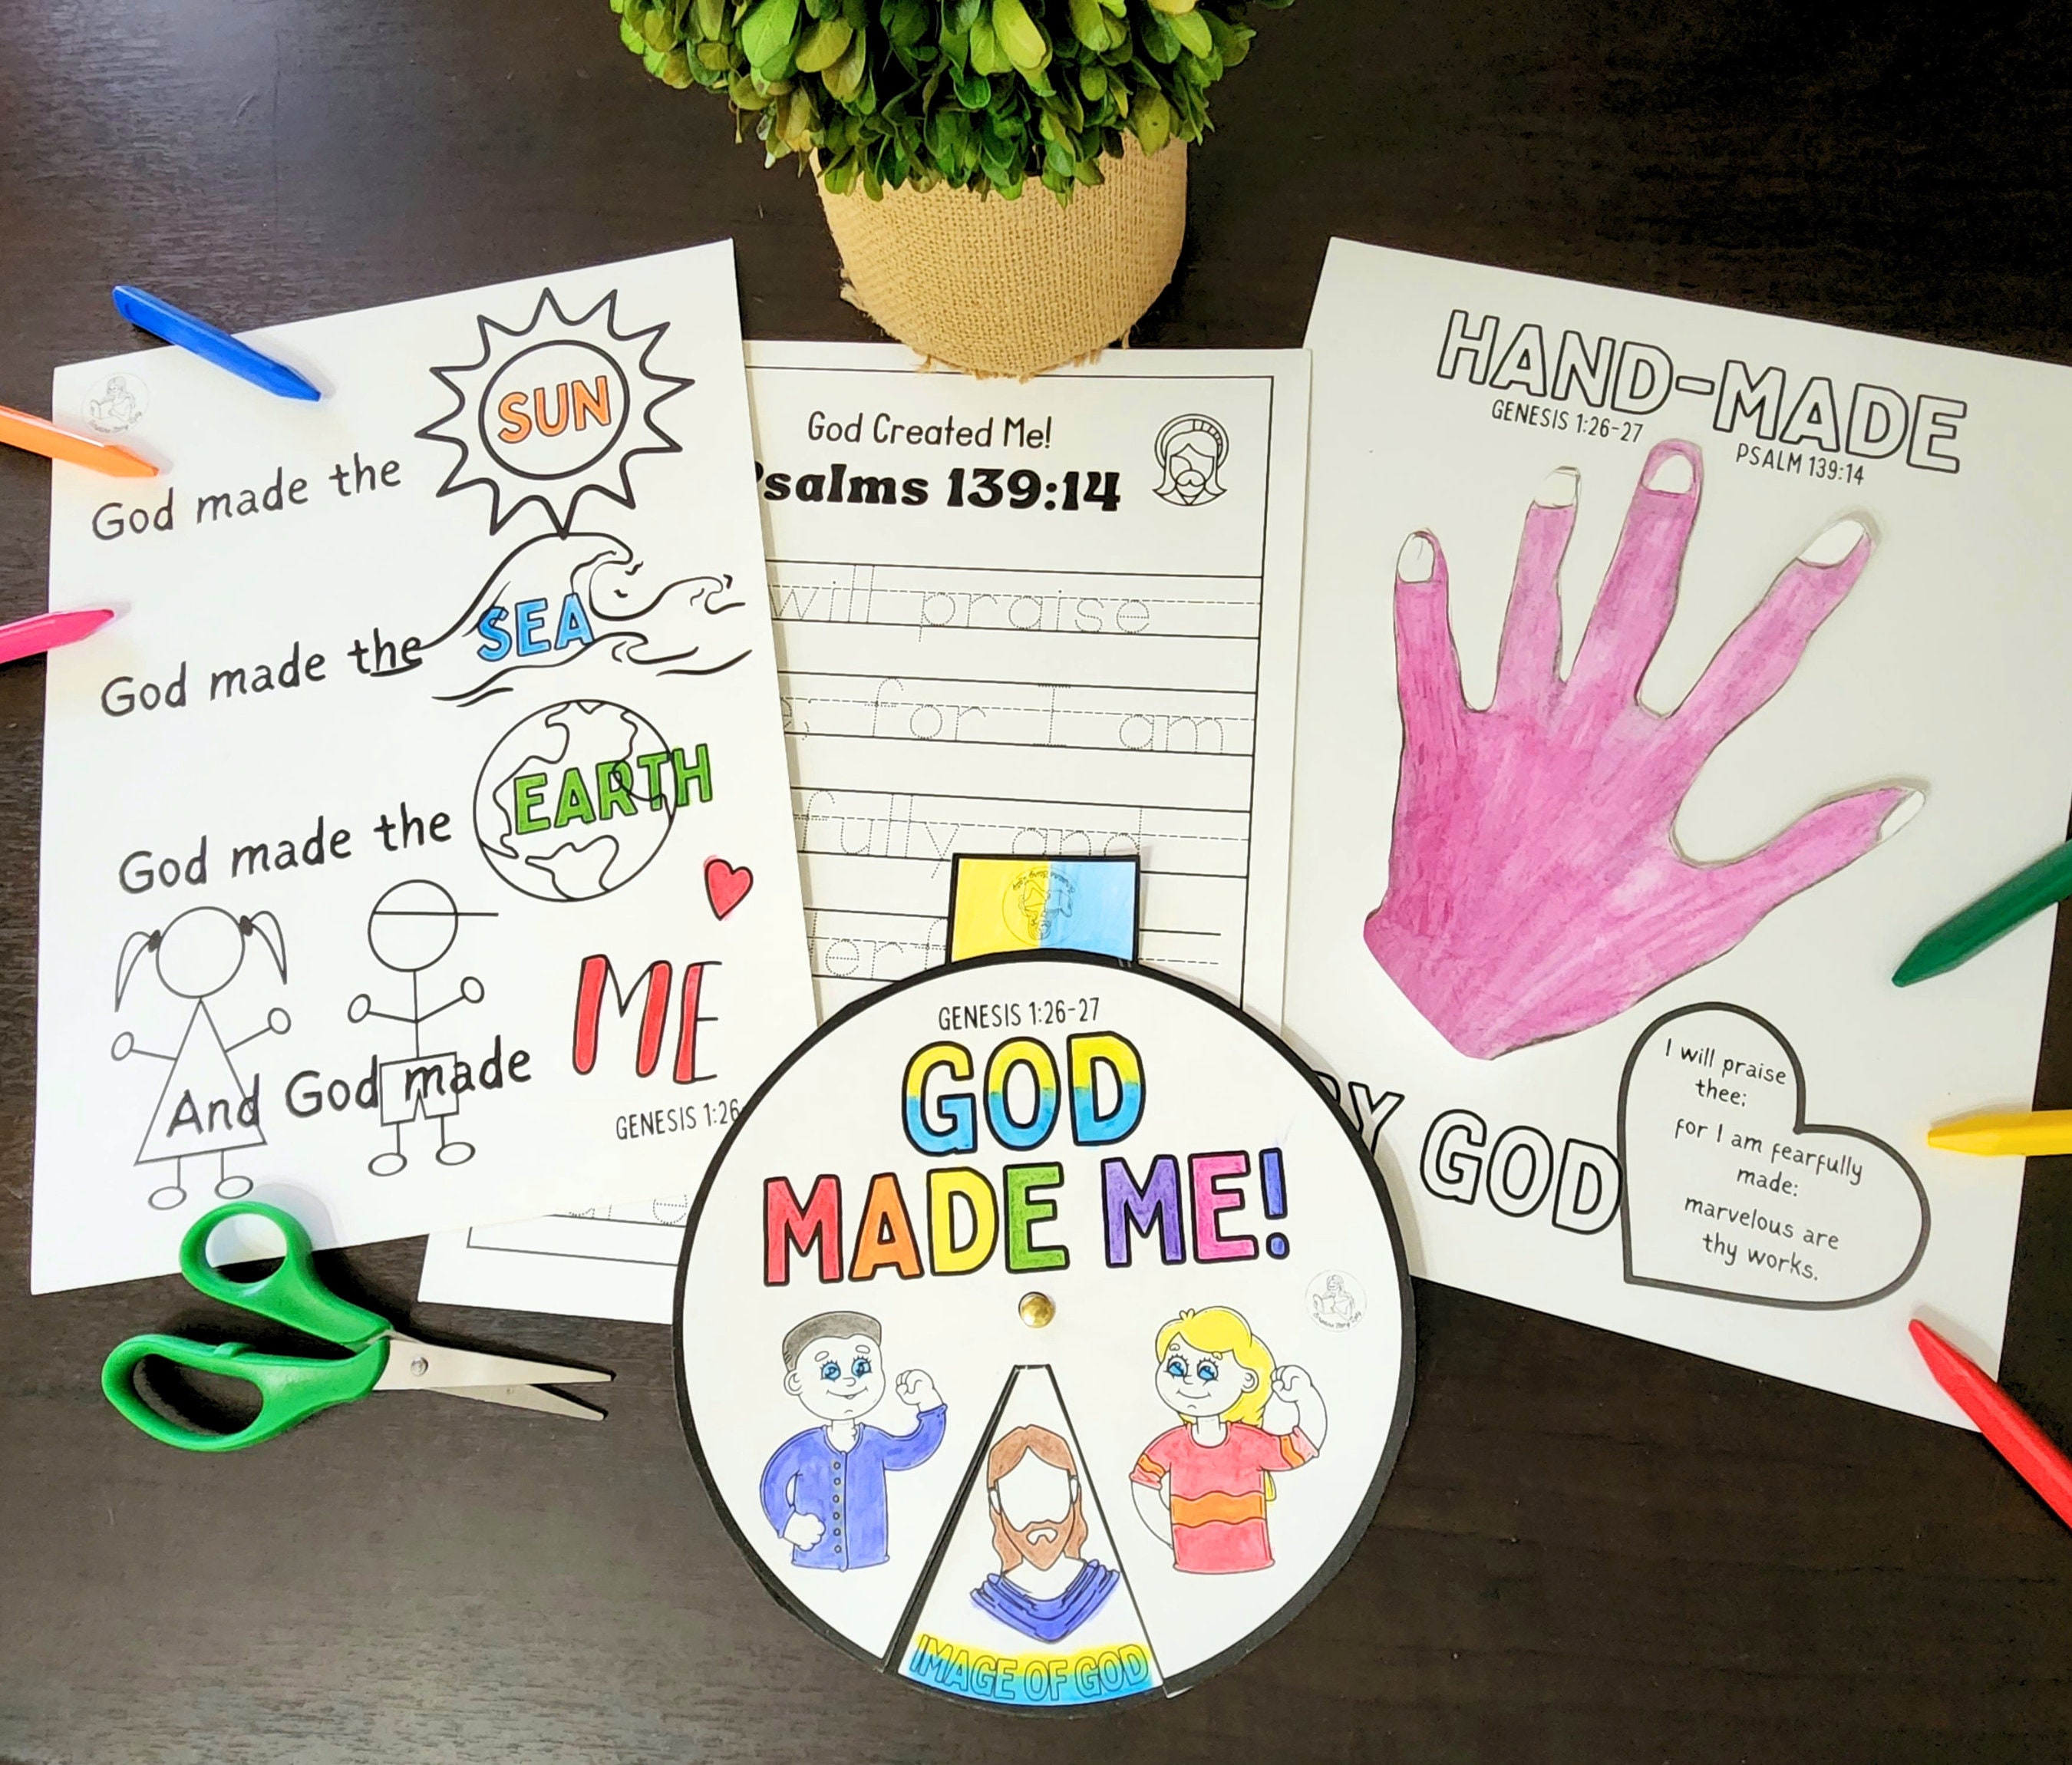 God made the SUN
God made the SEA
God made the EARTH
And God made ME
GENESIS 1:26
God Created Me!
Psalms 139:14
will praise
for I am
fully and
HAND-MADE
GENESIS 1:26-27
PSALM 139:14
BY GOD
I will praise
thee;
for I am fearfully
made:
marvelous are
thy works.
GENESIS 1:26-27
GOD
MADE ME!
IMAGE OF GOD